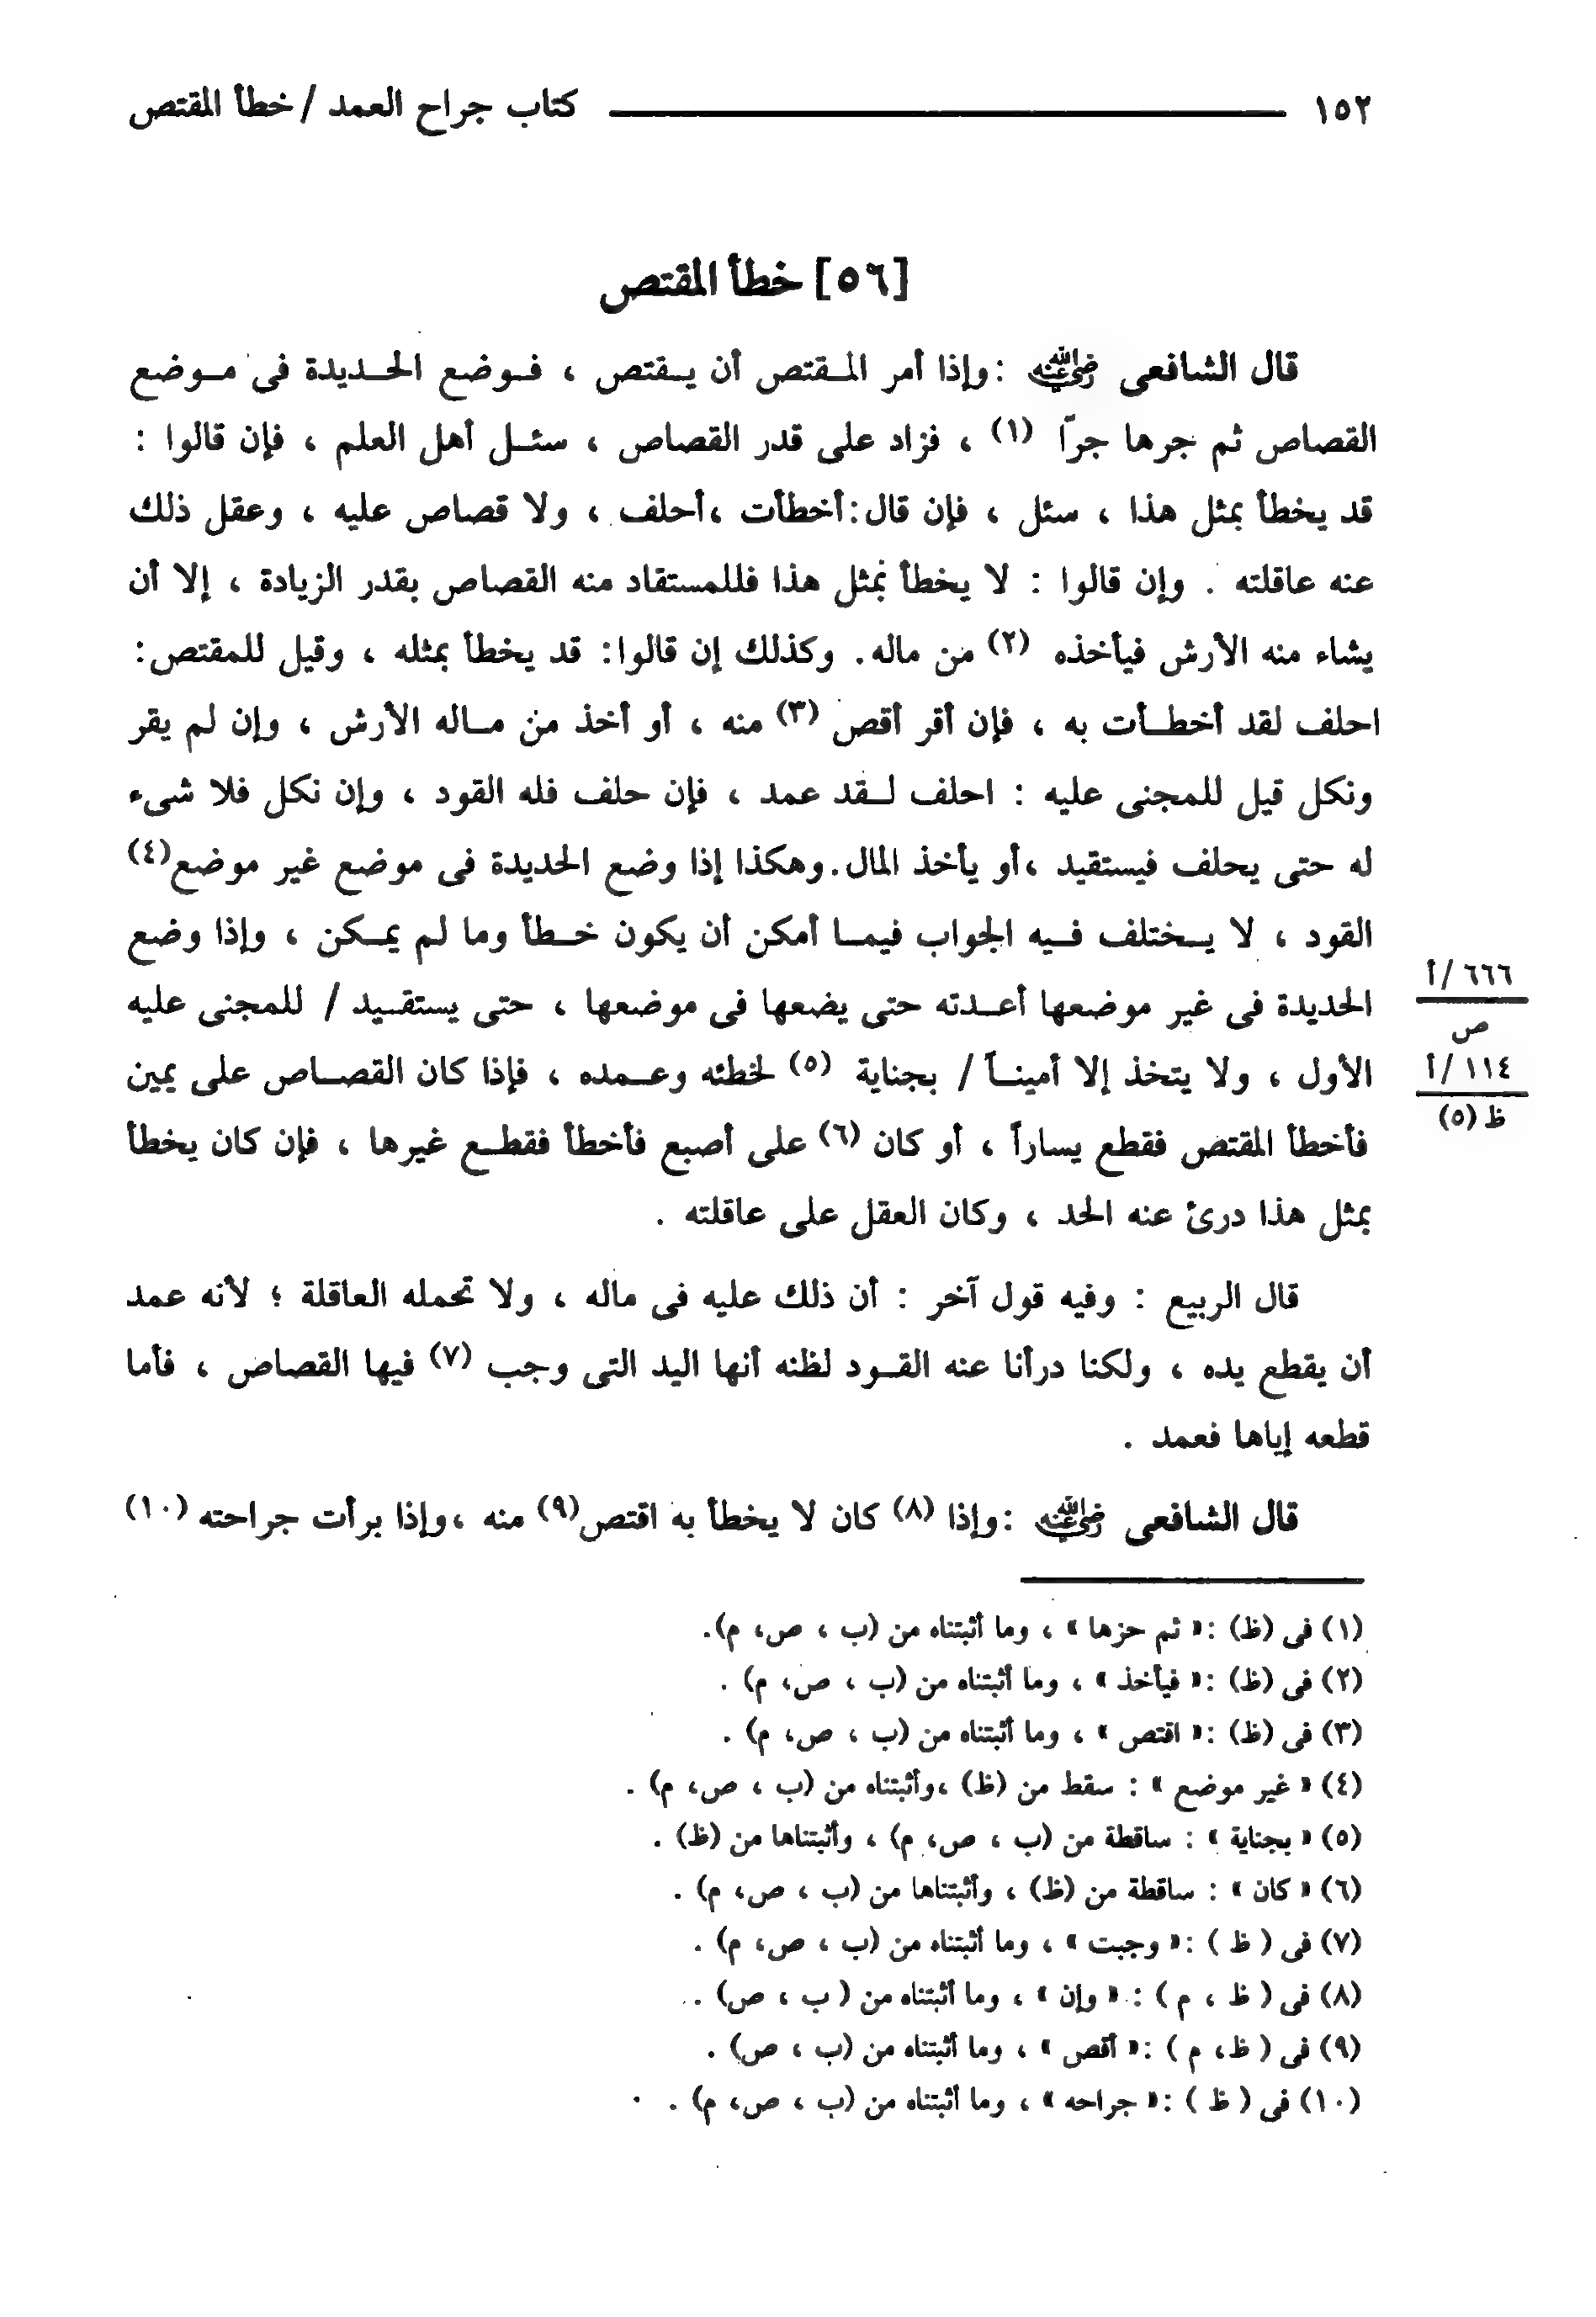 ١٥٢ كتاب جراح العمد / خطأ المقتص
[٥٦] خطأ المقتص
قال الشافعى رضي الله عنه : وإذا أمر المقتص أن يقتص ، فوضع الحديدة فى موضع
القصاص ثم جرها جرّا (١) ، فزاد على قدر القصاص ، سئل أهل العلم ، فإن قالوا :
قد يخطأ بمثل هذا ، سئل ، فإن قال : أخطأت ، أحلف ، ولا قصاص عليه ، وعقل ذلك
عنه عاقلته . وإن قالوا : لا يخطأ بمثل هذا فللمستقاد منه القصاص بقدر الزيادة ، إلا أن
يشاء منه الأرش فيأخذه (٢) من ماله . وكذلك إن قالوا : قد يخطأ بمثله ، وقيل للمقتص :
احلف لقد أخطأت به ، فإن أقر أقص (٣) منه ، أو أخذ من ماله الأرش ، وإن لم يقر
ونكل قيل للمجنى عليه : احلف لقد عمد ، فإن حلف فله القود ، وإن نكل فلا شىء
له حتى يحلف فيستقيد ، أو يأخذ المال . وهكذا إذا وضع الحديدة فى موضع غير موضع (٤)
القود ، لا يختلف فيه الجواب فيما أمكن أن يكون خطأ وما لم يمكن ، وإذا وضع
الحديدة فى غير موضعها أعدته حتى يضعها فى موضعها ، حتى يستقيد / للمجنى عليه
الأول ، ولا يتخذ إلا أمينا / بجناية (٥) لخطئه وعمده ، فإذا كان القصاص على يمين
فأخطأ المقتص فقطع يساراً ، أو كان (٦) على أصبع فأخطأ فقطع غيرها ، فإن كان يخطأ
بمثل هذا درئ عنه الحد ، وكان العقل على عاقلته .
٦٦٦ / أ
ص
١١٤ / أ
ظ (٥)
قال الربيع : وفيه قول آخر : أن ذلك عليه فى ماله ، ولا تحمله العاقلة ؛ لأنه عمد
أن يقطع يده ، ولكنا درأنا عنه القود لظنه أنها اليد التى وجب (٧) فيها القصاص ، فأما
قطعه إياها فعمد .
قال الشافعى رضي الله عنه : وإذا (٨) كان لا يخطأ به اقتص (٩) منه ، وإذا برأت جراحته (١٠)
(١) فى (ظ) : « ثم حزها » ، وما أثبتناه من (ب ، ص، م).
(٢) فى (ظ) : « فيأخذ » ، وما أثبتناه من (ب ، ص، م) .
(٣) فى (ظ) : « اقتص » ، وما أثبتناه من (ب ، ص، م) .
(٤) « غير موضع » : سقط من (ظ) ، وأثبتناه من (ب ، ص، م) .
(٥) « بجناية » : ساقطة من (ب ، ص، م) ، وأثبتناها من (ظ) .
(٦) « كان » : ساقطة من (ظ) ، وأثبتناها من (ب ، ص، م) .
(٧) فى ( ظ ) : « وجبت » ، وما أثبتناه من (ب ، ص، م) .
(٨) فى ( ظ ، م ) : « وإن » ، وما أثبتناه من ( ب ، ص) .
(٩) فى ( ظ، م ) : « أقص » ، وما أثبتناه من (ب ، ص) .
(١٠) فى ( ظ ) : « جراحه » ، وما أثبتناه من (ب ، ص، م) .